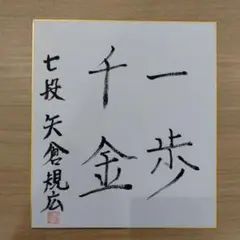 一歩
千金
七段 矢倉規広